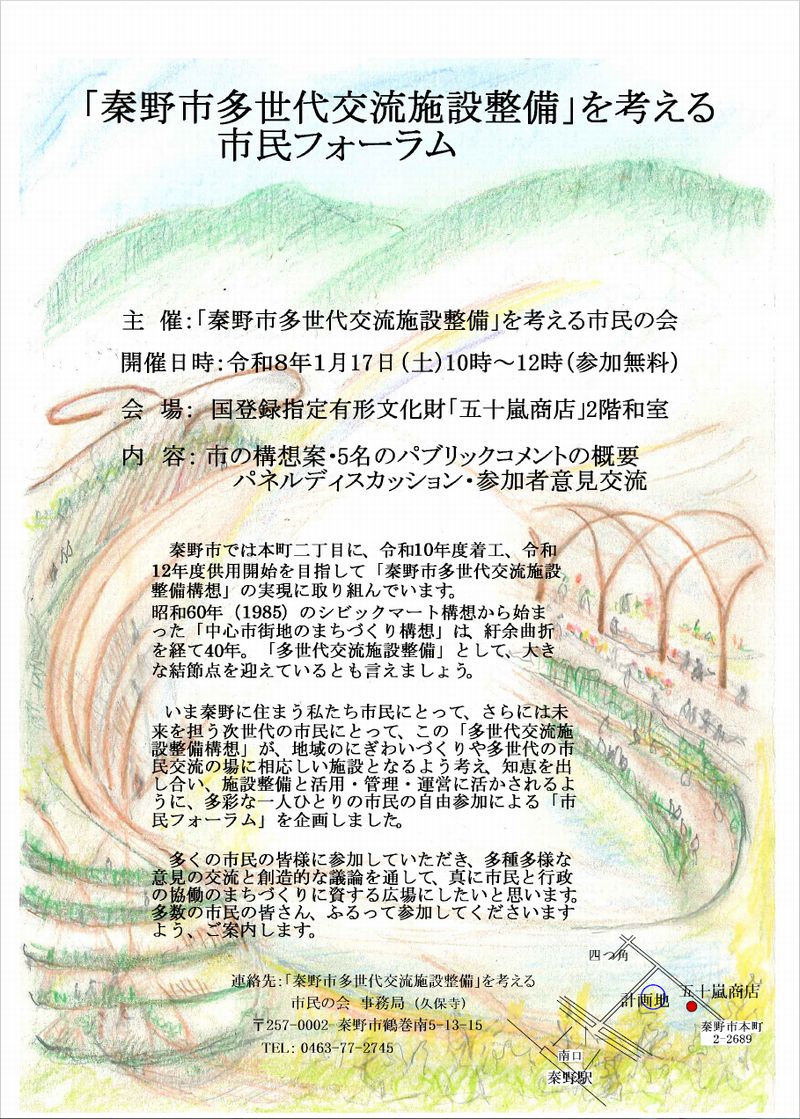 「秦野市多世代交流施設整備」を考える
市民フォーラム
主 催:「秦野市多世代交流施設整備」を考える市民の会
開催日時:令和8年1月17日(土)10時～12時(参加無料)
会 場: 国登録指定有形文化財「五十嵐商店」2階和室
内 容: 市の構想案・5名のパブリックコメントの概要
パネルディスカッション・参加者意見交流
秦野市では本町二丁目に、令和10年度着工、令和
12年度供用開始を目指して「秦野市多世代交流施設
整備構想」の実現に取り組んでいます。
昭和60年（1985）のシビックマート構想から始ま
った「中心市街地のまちづくり構想」は、紆余曲折
を経て40年。「多世代交流施設整備」として、大き
な結節点を迎えているとも言えましょう。
いま秦野に住まう私たち市民にとって、さらには未
来を担う次世代の市民にとって、この「多世代交流施
設整備構想」が、地域のにぎわいづくりや多世代の市
民交流の場に相応しい施設となるよう考え、知恵を出
し合い、施設整備と活用・管理・運営に活かされるよ
うに、多彩な一人ひとりの市民の自由参加による「市
民フォーラム」を企画しました。
多くの市民の皆様に参加していただき、多種多様な
意見の交流と創造的な議論を通して、真に市民と行政
の協働のまちづくりに資する広場にしたいと思います。
多数の市民の皆さん、ふるって参加してくださいます
よう、ご案内します。
連絡先:「秦野市多世代交流施設整備」を考える
市民の会 事務局（久保寺）
〒257-0002 秦野市鶴巻南5-13-15
TEL: 0463-77-2745
四つ角
計画地
五十嵐商店
秦野市本町
2-2689
南口
秦野駅